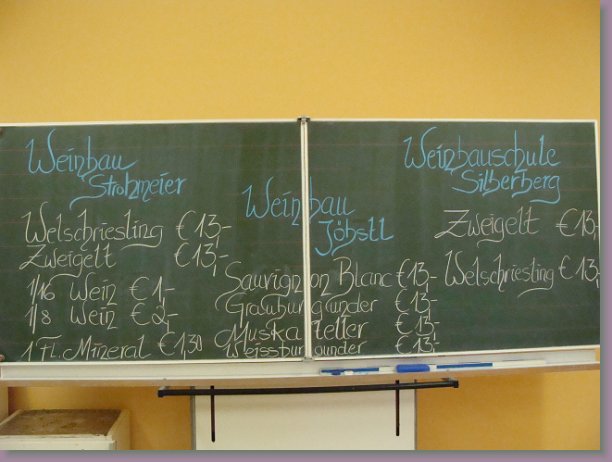 Weinbau
Strohmeier
Welschriesling €13,-
Zweigelt €13,-
1/16 Wein €1,-
1/8 Wein €2,-
1 Fl. Mineral €1,30
Weinbau
Jöbstl
Sauvignon Blanc €13,-
Grauburgunder €13,-
Muskateller €13,-
Weissburgunder €13,-
Weinbauschule
Silberberg
Zweigelt €13,-
Welschriesling €13,-